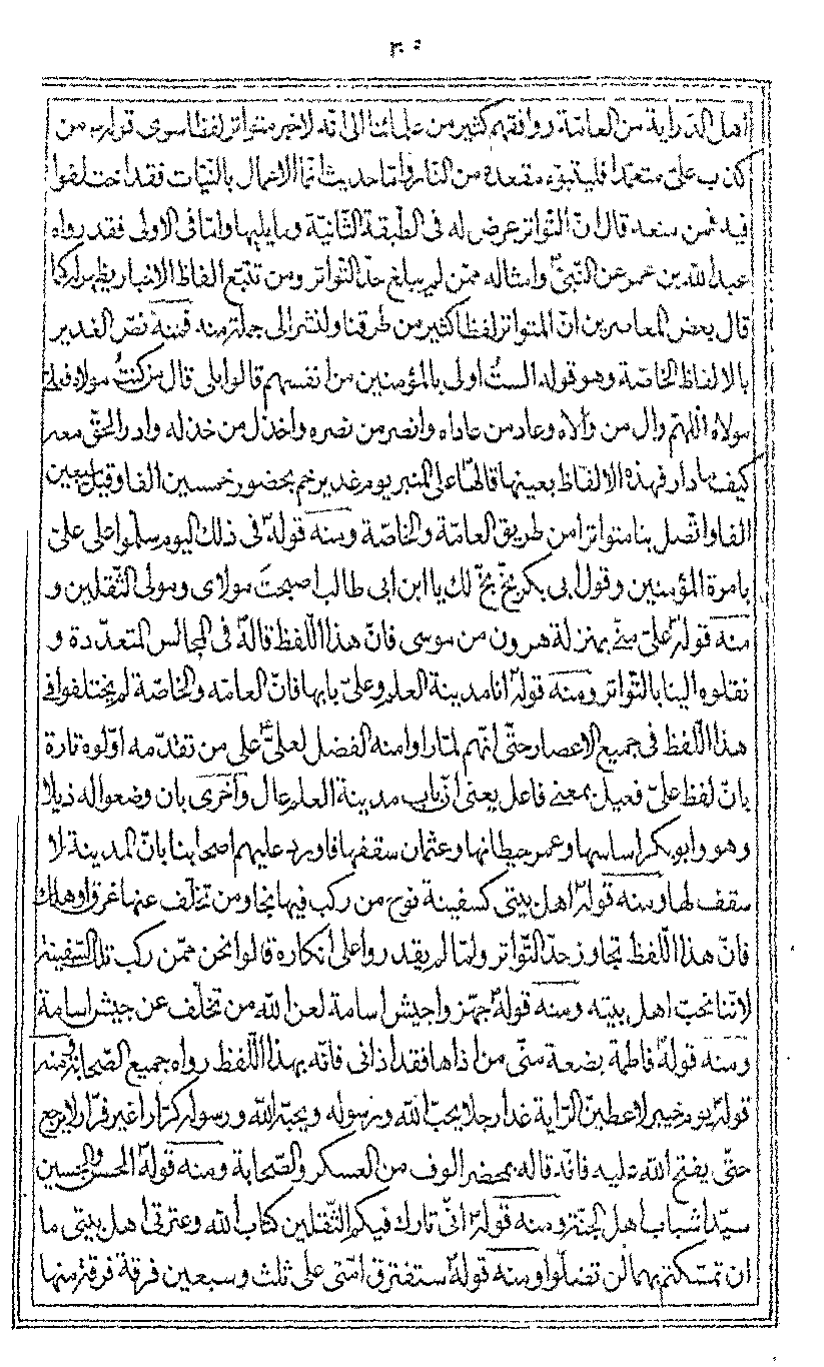 اهل الدراية من العامّة ووافقهم كثير من علمائنا الى انّه لا خبر متواتر لفظا سوى قوله ص من
كذب علىّ متعمّدا فليتبوّء مقعده من النار وامّا حديث انّما الاعمال بالنّيات فقد اختلفوا
فيه فمن منعه قال انّ التّواتر عرض له فى الطّبقة الثّانيّة وما يليها وامّا فى الاولى فقد رواه
عبد اللّه بن عمر عن النّبىّ وامثاله ممّن لم يبلغ حدّ التّواتر ومن تتبّع الفاظ الاخبار يظهر له كما
قال بعض المعاصرين انّ المتواتر لفظا كثير من طرقنا ولنشر الى جملة منه فمنه نصّ الغدير
بالالفاظ الخاصّة وهو قوله الستُ اولى بالمؤمنين من انفسهم قالوا بلى قال من كنتُ مولاه فعلىّ
مولاه اللّهمّ وال من والاه وعاد من عاداه وانصر من نصره واخذل من خذله وادر الحقّ معه
كيف ما دار فهذه الالفاظ بعينها قالها على المنبر يوم غدير خم بحضور خمسين الفا وقيل سبعين
الفا واتّصل بنا متواترا من طريق العامّة والخاصّة ومنه قوله فى ذلك اليوم سلّموا على علىّ
بامرة المؤمنين وقول ابى بكر بخّ بخّ لك يا ابن ابى طالب اصبحتَ مولاى ومولى الثّقلين و
منه قوله علىّ منّى بمنزلة هرون من موسى فانّ هذا اللّفظ قاله فى المجالس المتعدّدة و
نقلوه الينا بالتّواتر ومنه قوله انا مدينة العلم وعلىّ بابها فانّ العامّه والخاصّة لم يختلفوا فى
هذا اللّفظ فى جميع الاعصار حتّى انّهم لمّا راوا منه الفضل لعلىّ ع على من تقدّمه اوّلوه تارة
بانّ لفظ علىّ فعيل بمعنى فاعل يعنى انّ باب مدينة العلم عال واخرى بان وضعوا له ذيلا
وهو وابو بكر اساسها وعمر حيطانها وعثمان سقفها فاورد عليهم اصحابنا بانّ المدينة لا
سقف لها ومنه قوله اهل بيتى كسفينة نوح من ركب فيها نجا ومن تخلّف عنها غرق او هلك
فانّ هذا اللّفظ تجاوز حدّ التّواتر ولمّا لم يقدروا على انكاره قالوا نحن ممّن ركب تلك السّفينة
لانّنا نحبّ اهل بيته ومنه قوله جهّزوا جيش اسامة لعن اللّه من تخلّف عن جيش اسامة
ومنه قوله فاطمة بضعة منّى من اذاها فقد اذانى فانّه بهذا اللّفظ رواه جميع الصّحابة ومنه
قوله يوم خيبر لاعطينّ الرّاية غدا رجلا يحبّ اللّه ورسوله ويحبّه اللّه ورسوله كرّارا غير فرّار لا يرجع
حتّى يفتح اللّه عليه فانّه قاله بمحضر الوف من العسكر والصّحابة ومنه قوله الحسن والحسين
سيّدا شباب اهل الجنّة ومنه قوله انّى تارك فيكم الثّقلين كتاب اللّه وعترتى اهل بيتى ما
ان تمسّكتم بهما لن تضلّوا ومنه قوله ستفترق امّتى على ثلث وسبعين فرقة فرقة منها